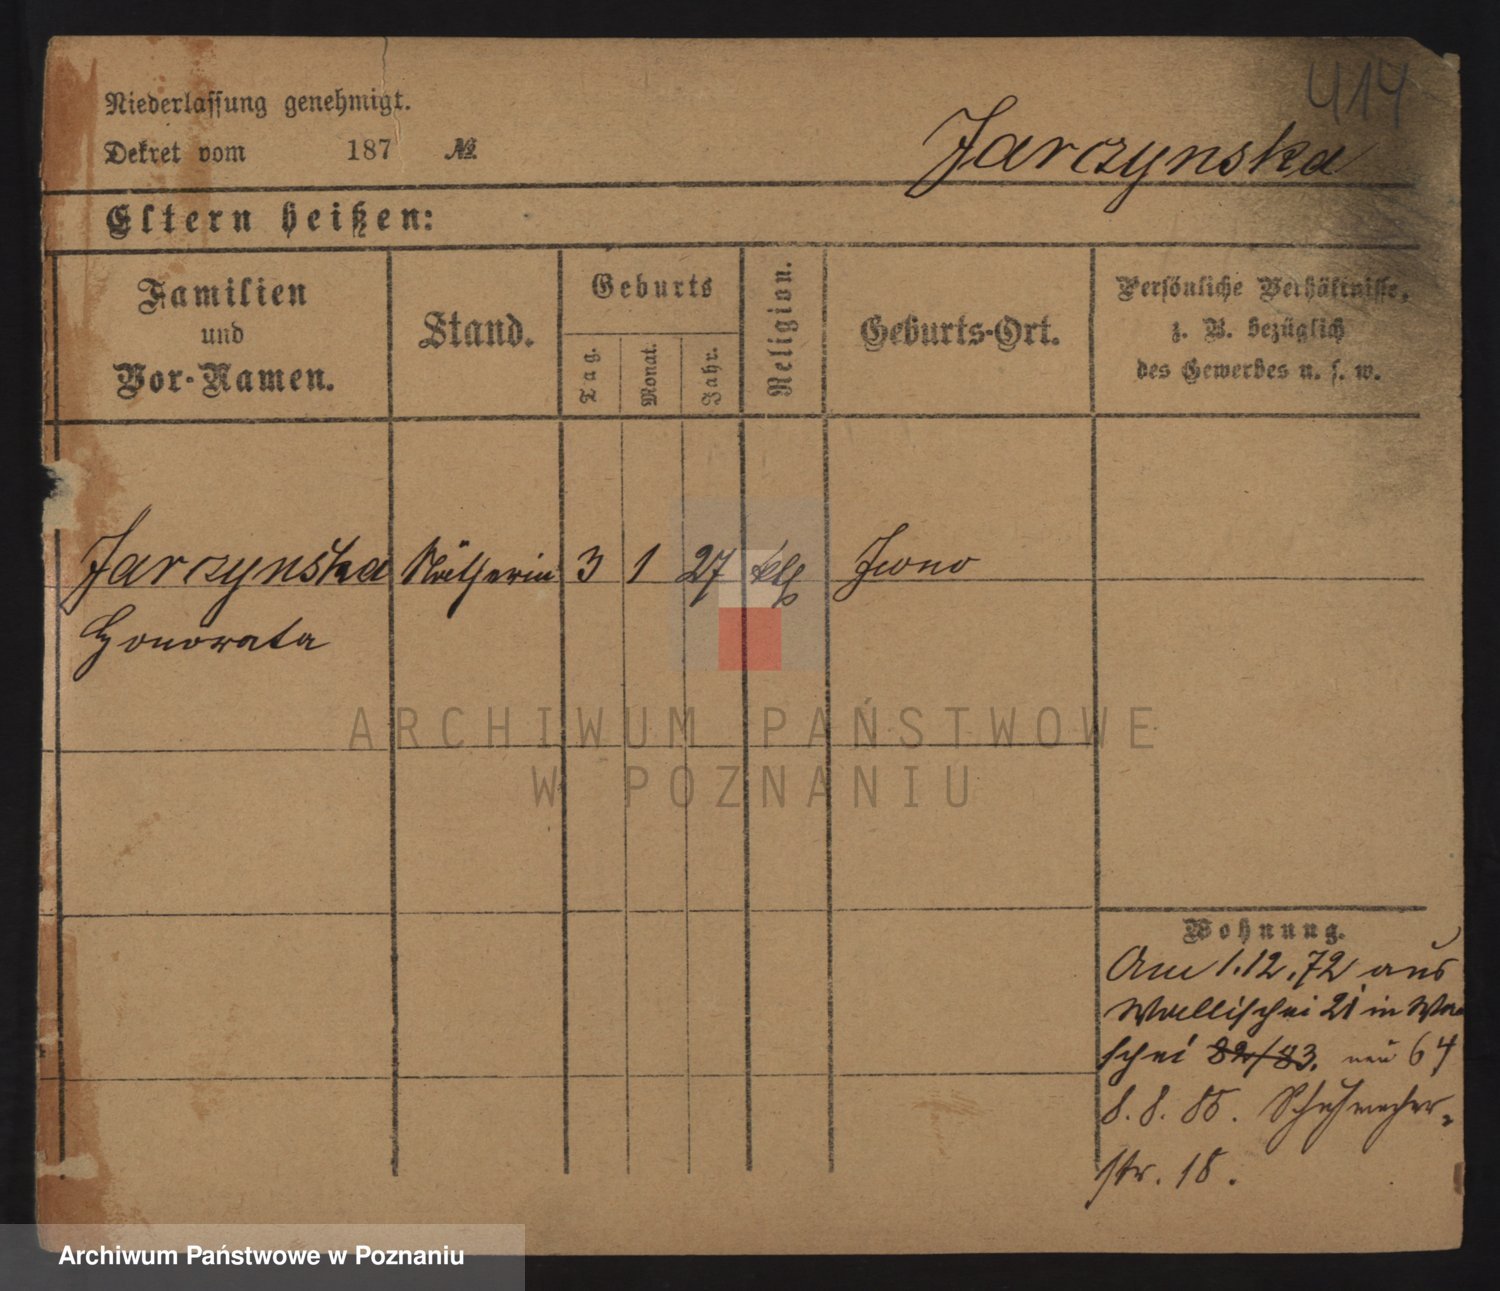 414
Niederlassung genehmigt.
Dekret vom 187 №
Jarczynska
Eltern heißen:
Familien
und
Vor-Namen.
Stand.
Geburts
Tag.
Monat.
Jahr.
Religion.
Geburts-Ort.
Persönliche Verhältnisse,
z. B. bezüglich
des Gewerbes u. s. w.
Jarczynska Nätherin 3 1 27 kth Iwno
Honorata
ARCHIWUM PAŃSTWOWE
W POZNANIU
Wohnung.
Am 1.12.72 aus
Wallischei 21 in Wa
schei 82/83. neu 64
8. 8. 85. Schuhmacher-
str. 18.
Archiwum Państwowe w Poznaniu